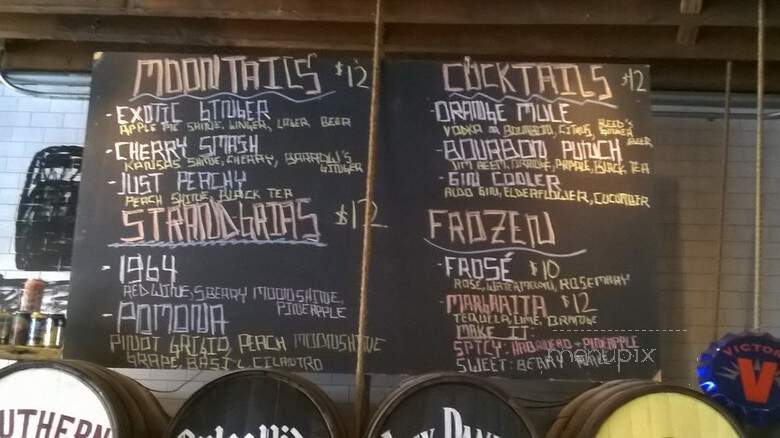 MOONTAILS $12
- EXOTIC GINGER
APPLE PIE SHINE, GINGER, BEER
- CHERRY SMASH
KANSAS SHINE, CHERRY, BARROW'S
GINGER
- JUST PEACHY
PEACH SHINE, BLACK TEA
STRANDGRIAS $12
- 1964
RED WINE, SBERRY MOONSHINE,
PINEAPPLE
- POMONA
PINOT GRIGIO, PEACH MOONSHINE
GRAPE, BASIL, CILANTRO
COCKTAILS $12
- ORANGE MULE
VODKA OR BOURBON, CITRUS, REED'S
GINGER
BEER
- BOURBON PUNCH
JIM BEEM, ORANGE, P'APPLE, BLACK TEA
- GIN COOLER
GIN, ELDERFLOWER, CUCUMBER
FROZEN
- FROSÉ $10
ROSE, WATERMELON, ROSEMARY
- MARGARITA $12
TEQUILA, LIME, ORANGE
MAKE IT:
SPICY: HABANERO + PINEAPPLE
SWEET: BERRY
menupix
VICTORY
V
OUTHERN